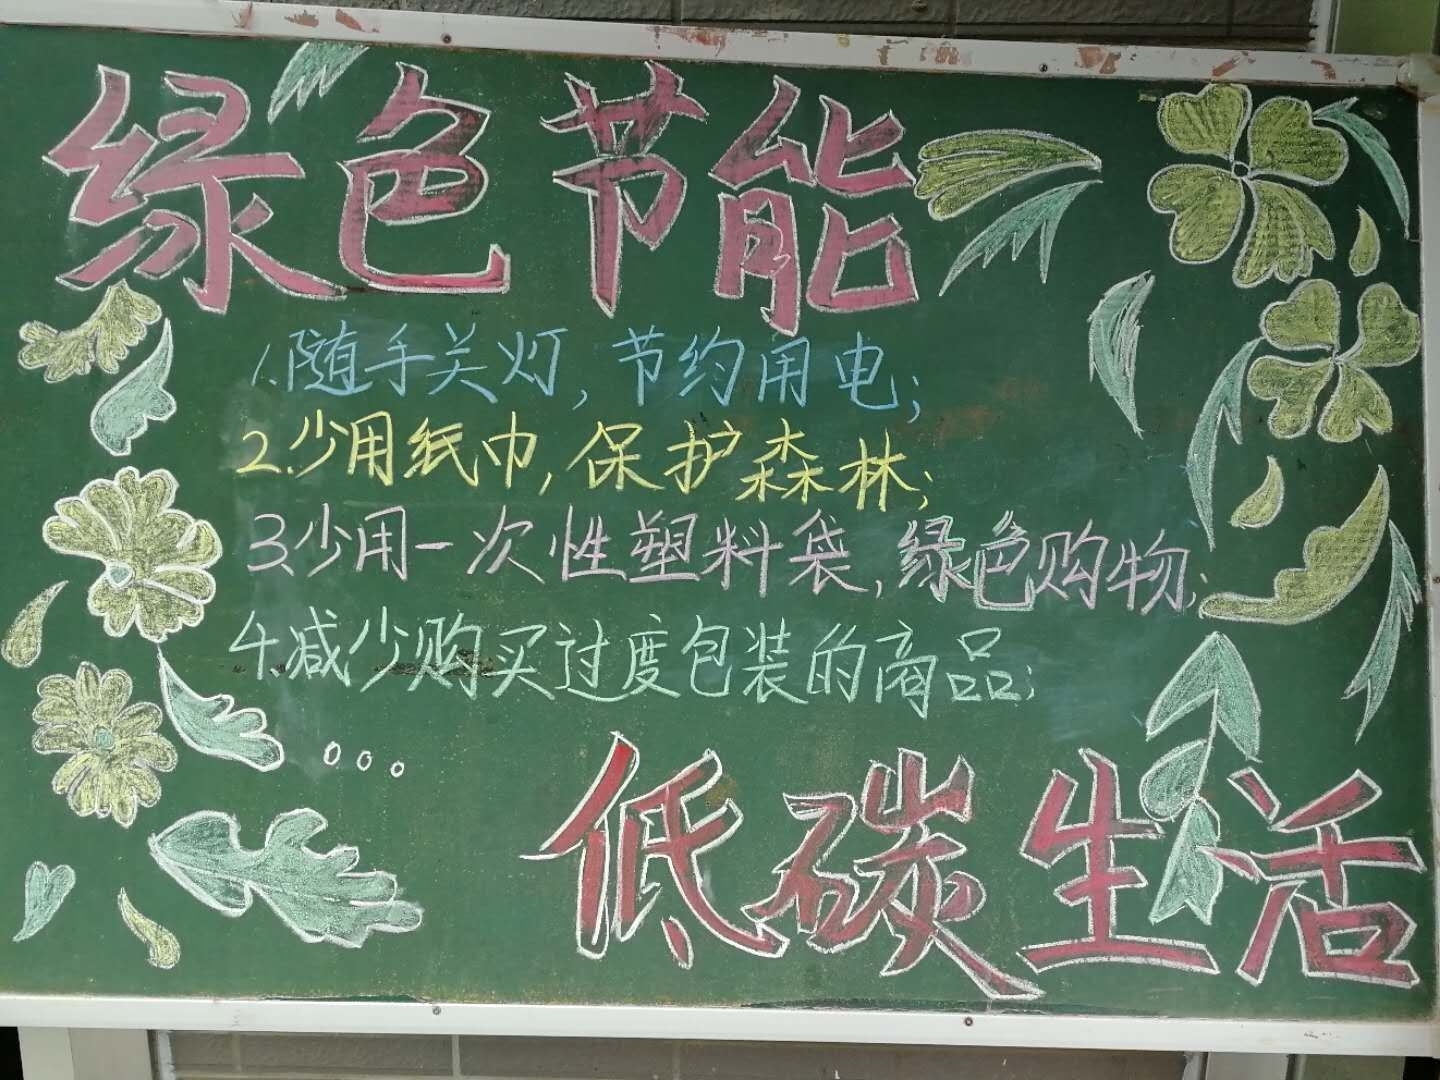 绿色节能
1.随手关灯,节约用电;
2.少用纸巾,保护森林;
3.少用一次性塑料袋,绿色购物;
4.减少购买过度包装的商品;
。。。
低碳生活